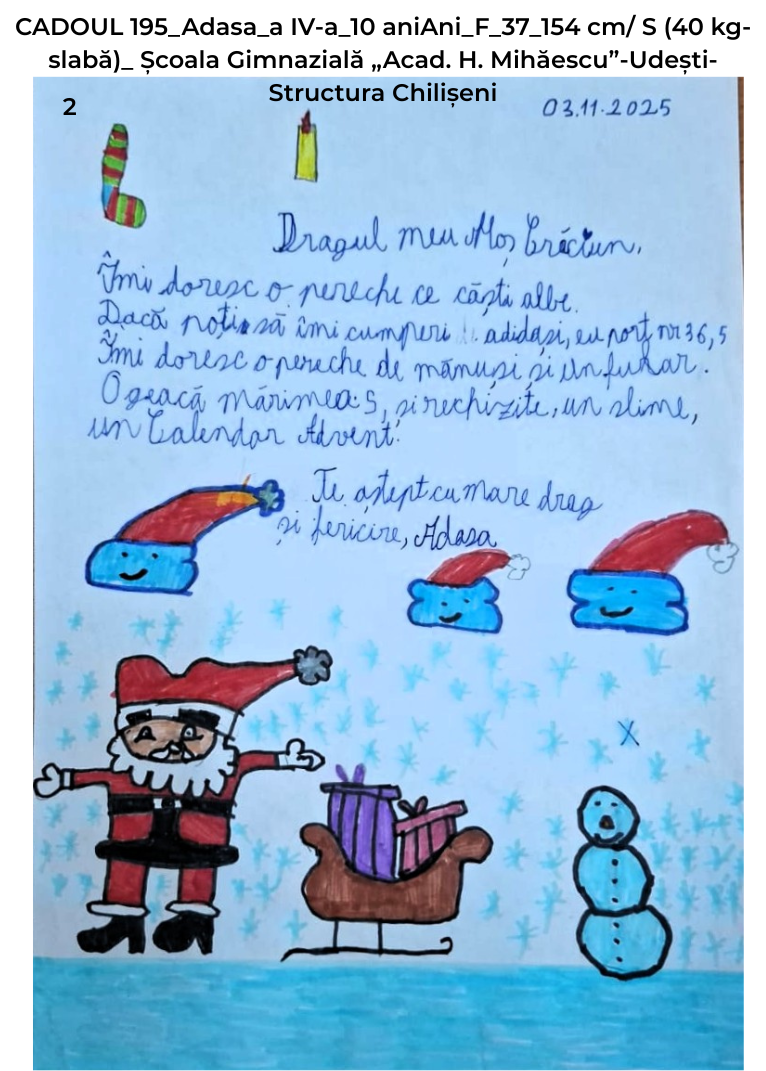 CADOUL 195_Adasa_a IV-a_10 aniAni_F_37_154 cm/ S (40 kg-
slabă)_ Școala Gimnazială „Acad. H. Mihăescu”-Udești-
Structura Chilișeni
2
03.11.2025
Dragul meu Moș Crăciun,
Îmi doresc o pereche ce căști albe.
Dacă poți să îmi cumperi adidași, eu port nr 36,5
Îmi doresc o pereche de mănuși și un fular.
O geacă mărimea: S, și rechizite, un slime,
un Calendar Advent.
Te aștept cu mare drag
și fericire, Adasa